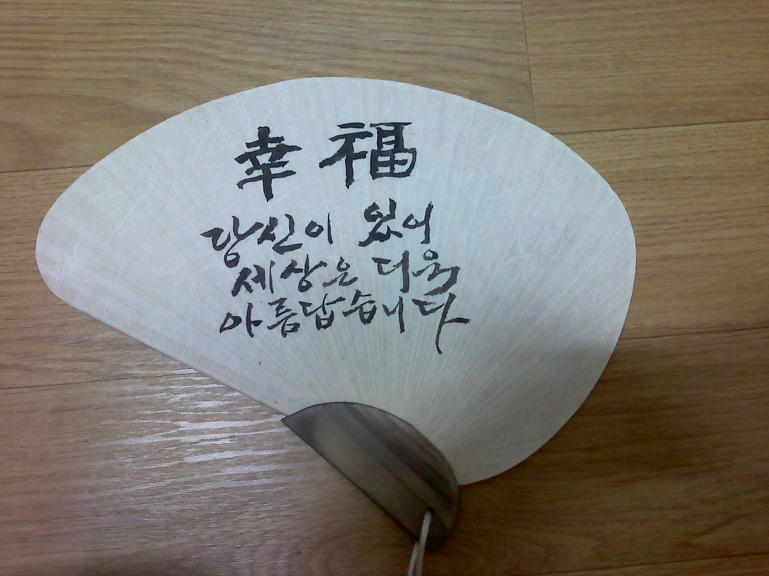 幸福
당신이 있어
세상은 더욱
아름답습니다